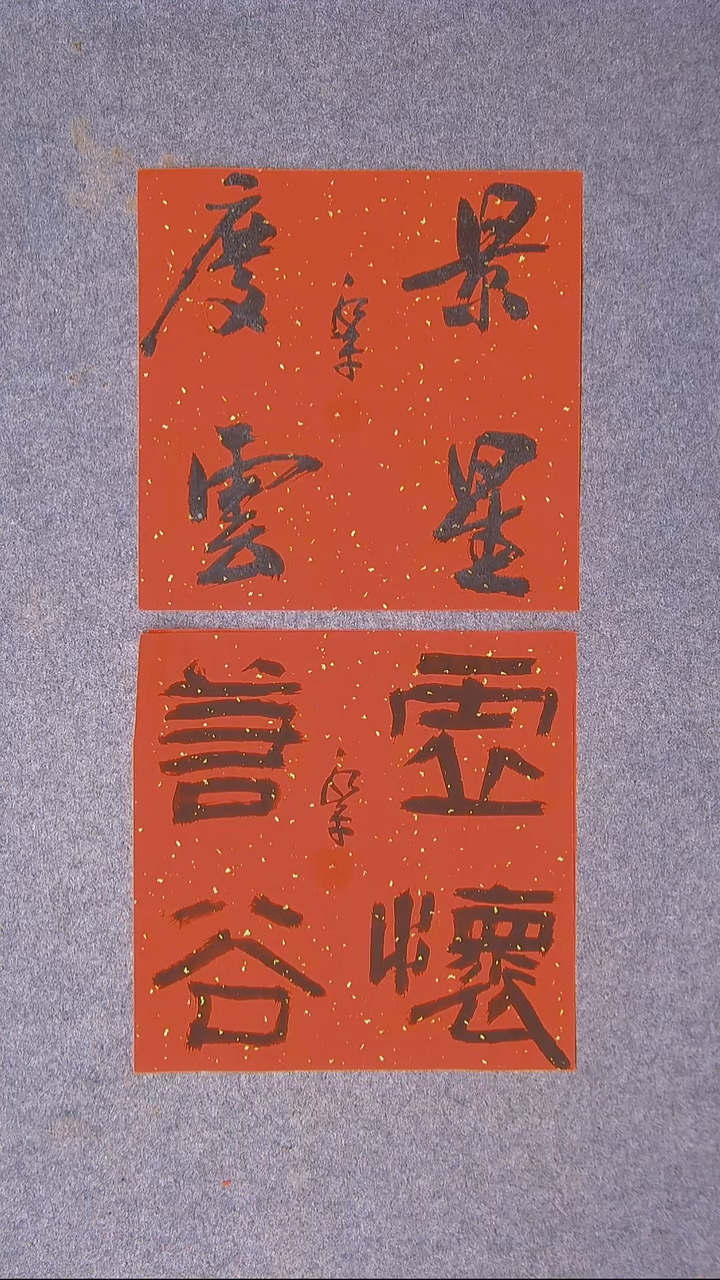 景星
慶雲
虛懷
若谷